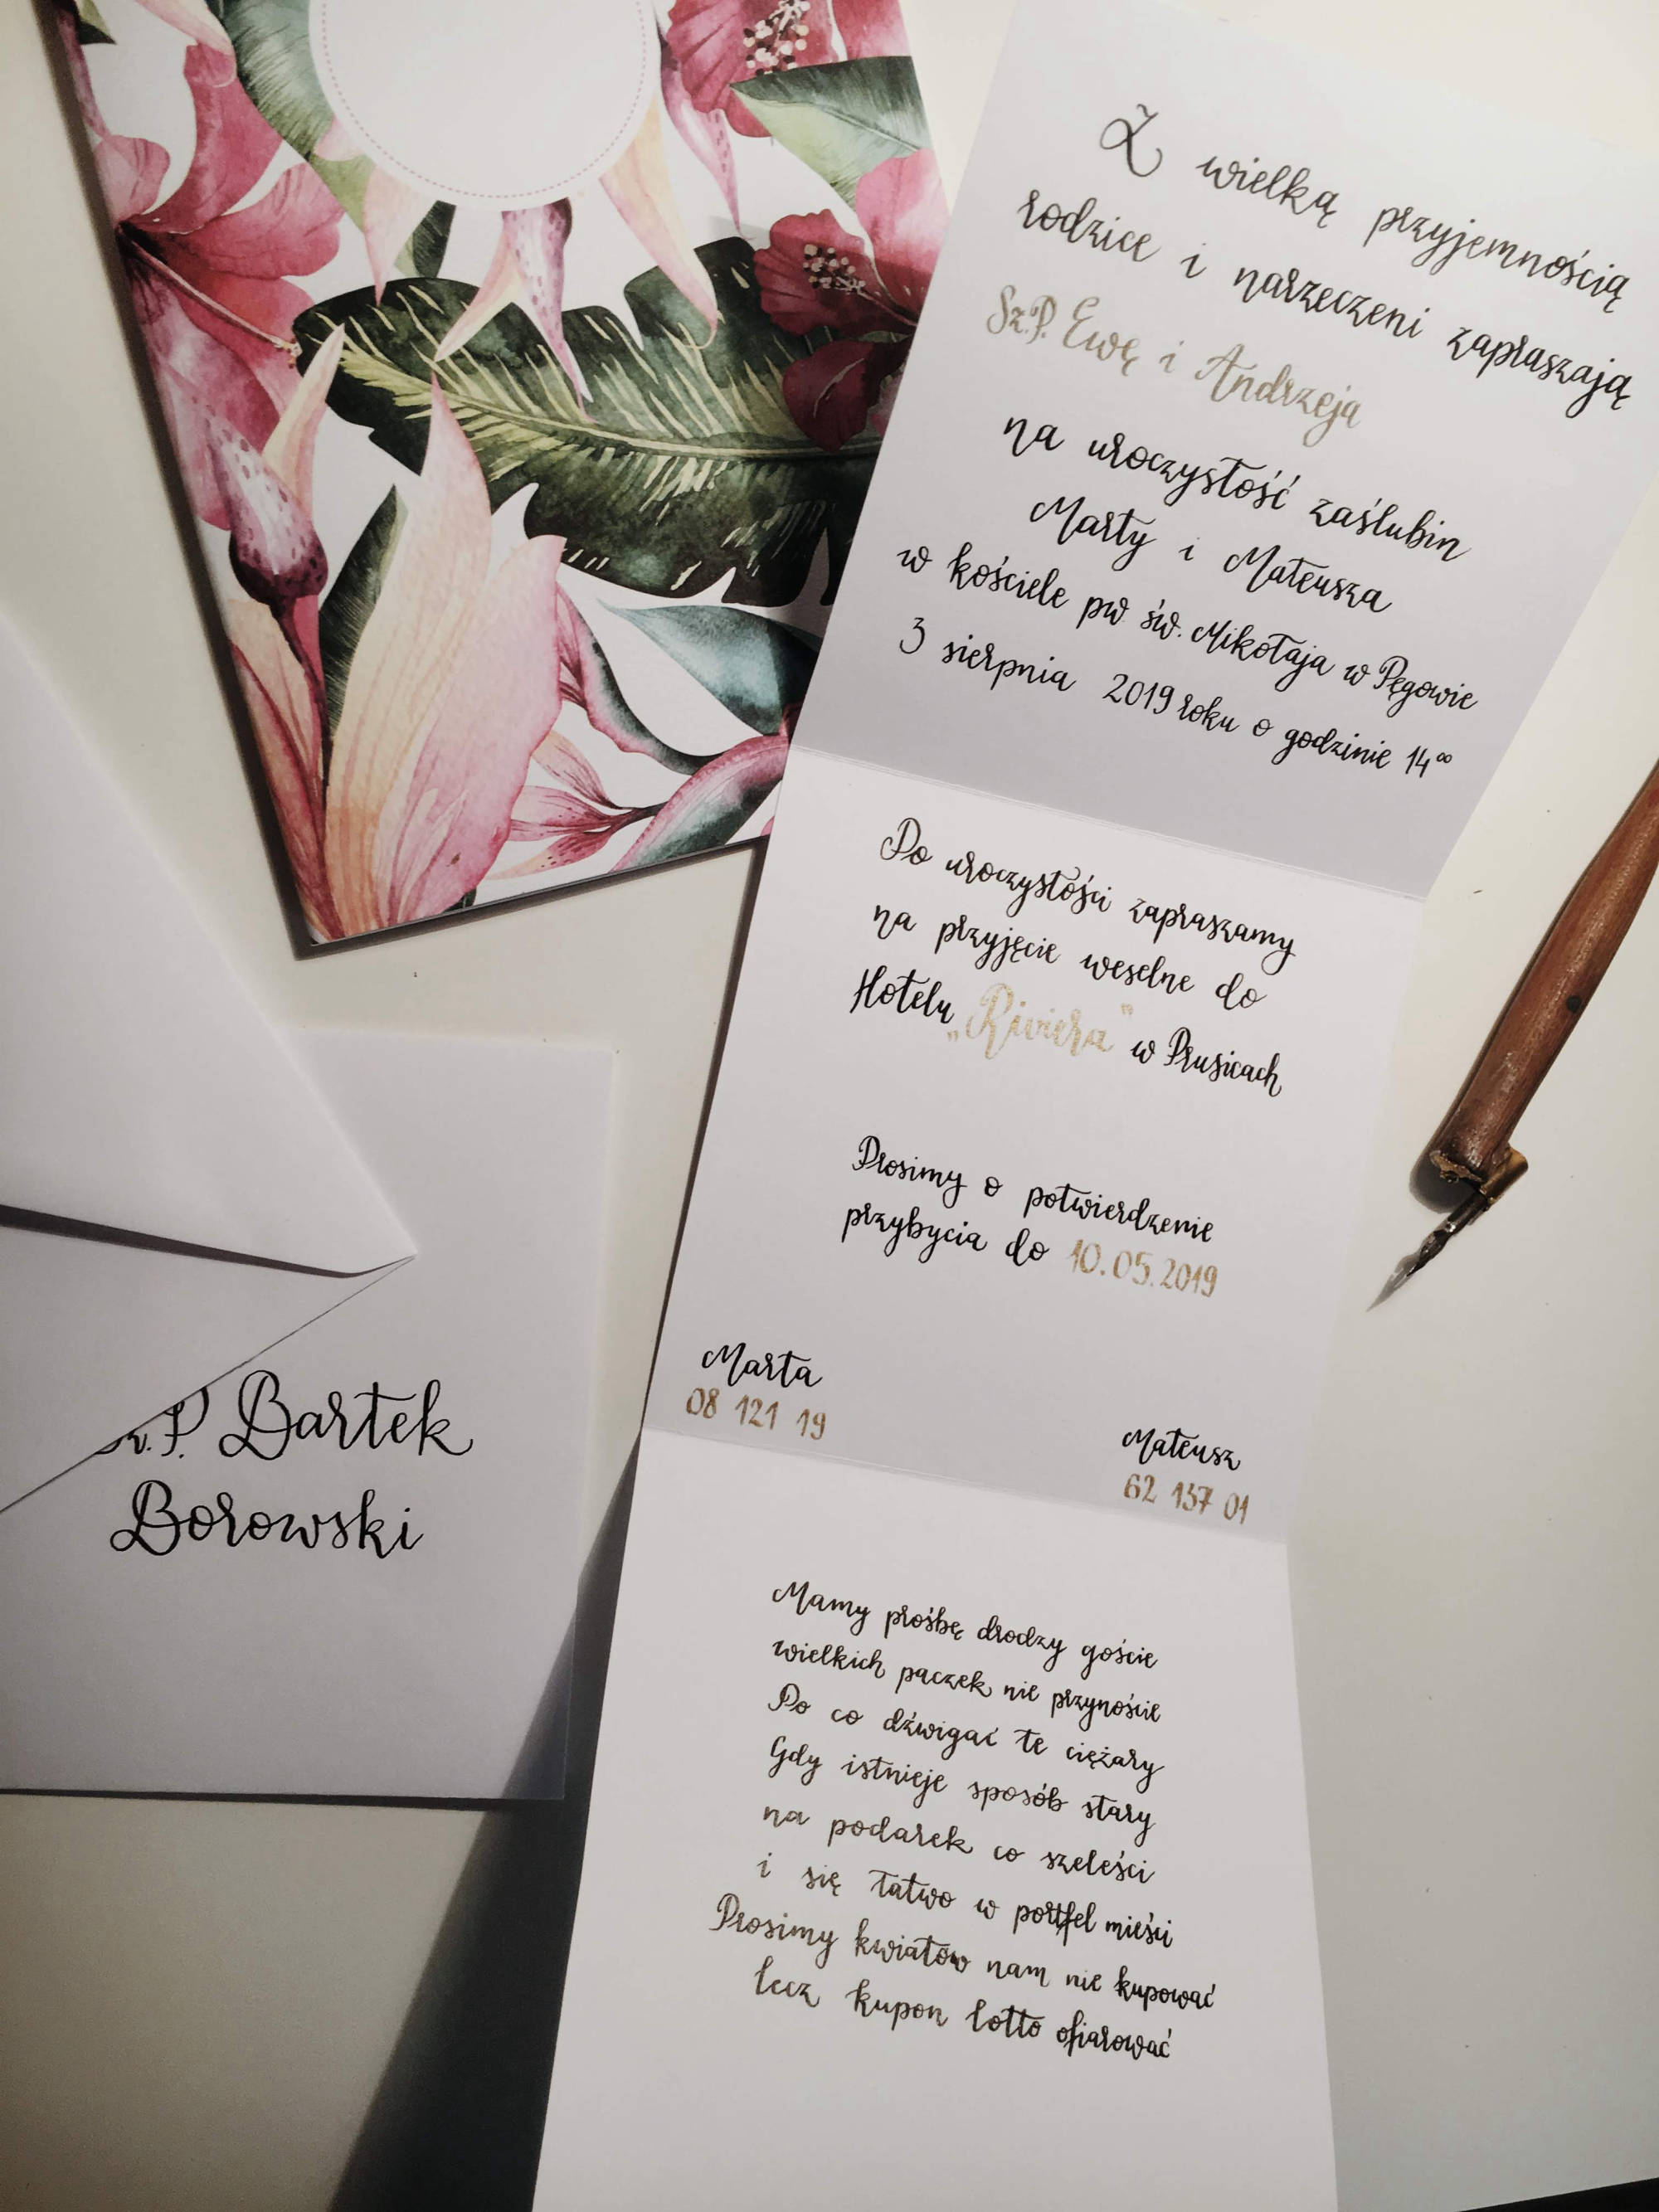 Z wielką przyjemnością
rodzice i narzeczeni zapraszają
Sz.P. Ewę i Andrzeja
na uroczystość zaślubin
Marty i Mateusza
w kościele pw. św. Mikołaja w Pęgowie
3 sierpnia 2019 roku o godzinie 14⁰⁰
Po uroczystości zapraszamy
na przyjęcie weselne do
Hotelu „Riviera" w Prusicach
Prosimy o potwierdzenie
przybycia do 10.05.2019
Marta
08 121 19
Mateusz
62 137 01
Mamy prośbę drodzy goście
wielkich paczek nie przynoście
Po co dźwigać te ciężary
Gdy istnieje sposób stary
na podarek co szeleści
i się łatwo w portfel mieści
Prosimy kwiatów nam nie kupować
lecz kupon lotto ofiarować
Sz.P. Bartek
Borowski